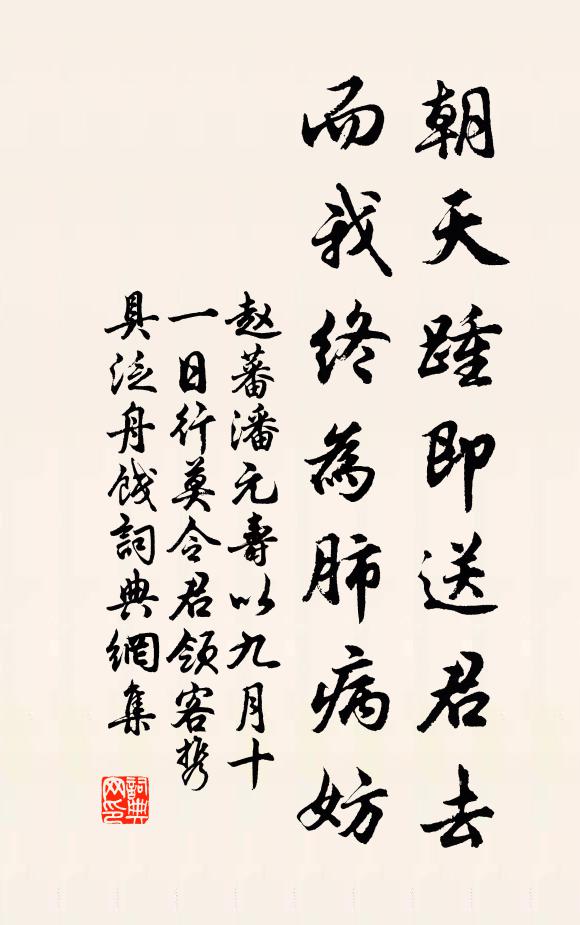 朝天踵即送君去
而我终為肺病妨
赵蕃潘元壽以九月十
一日行莫令君領客携
具泛舟餞詞典網集
詞典
网印